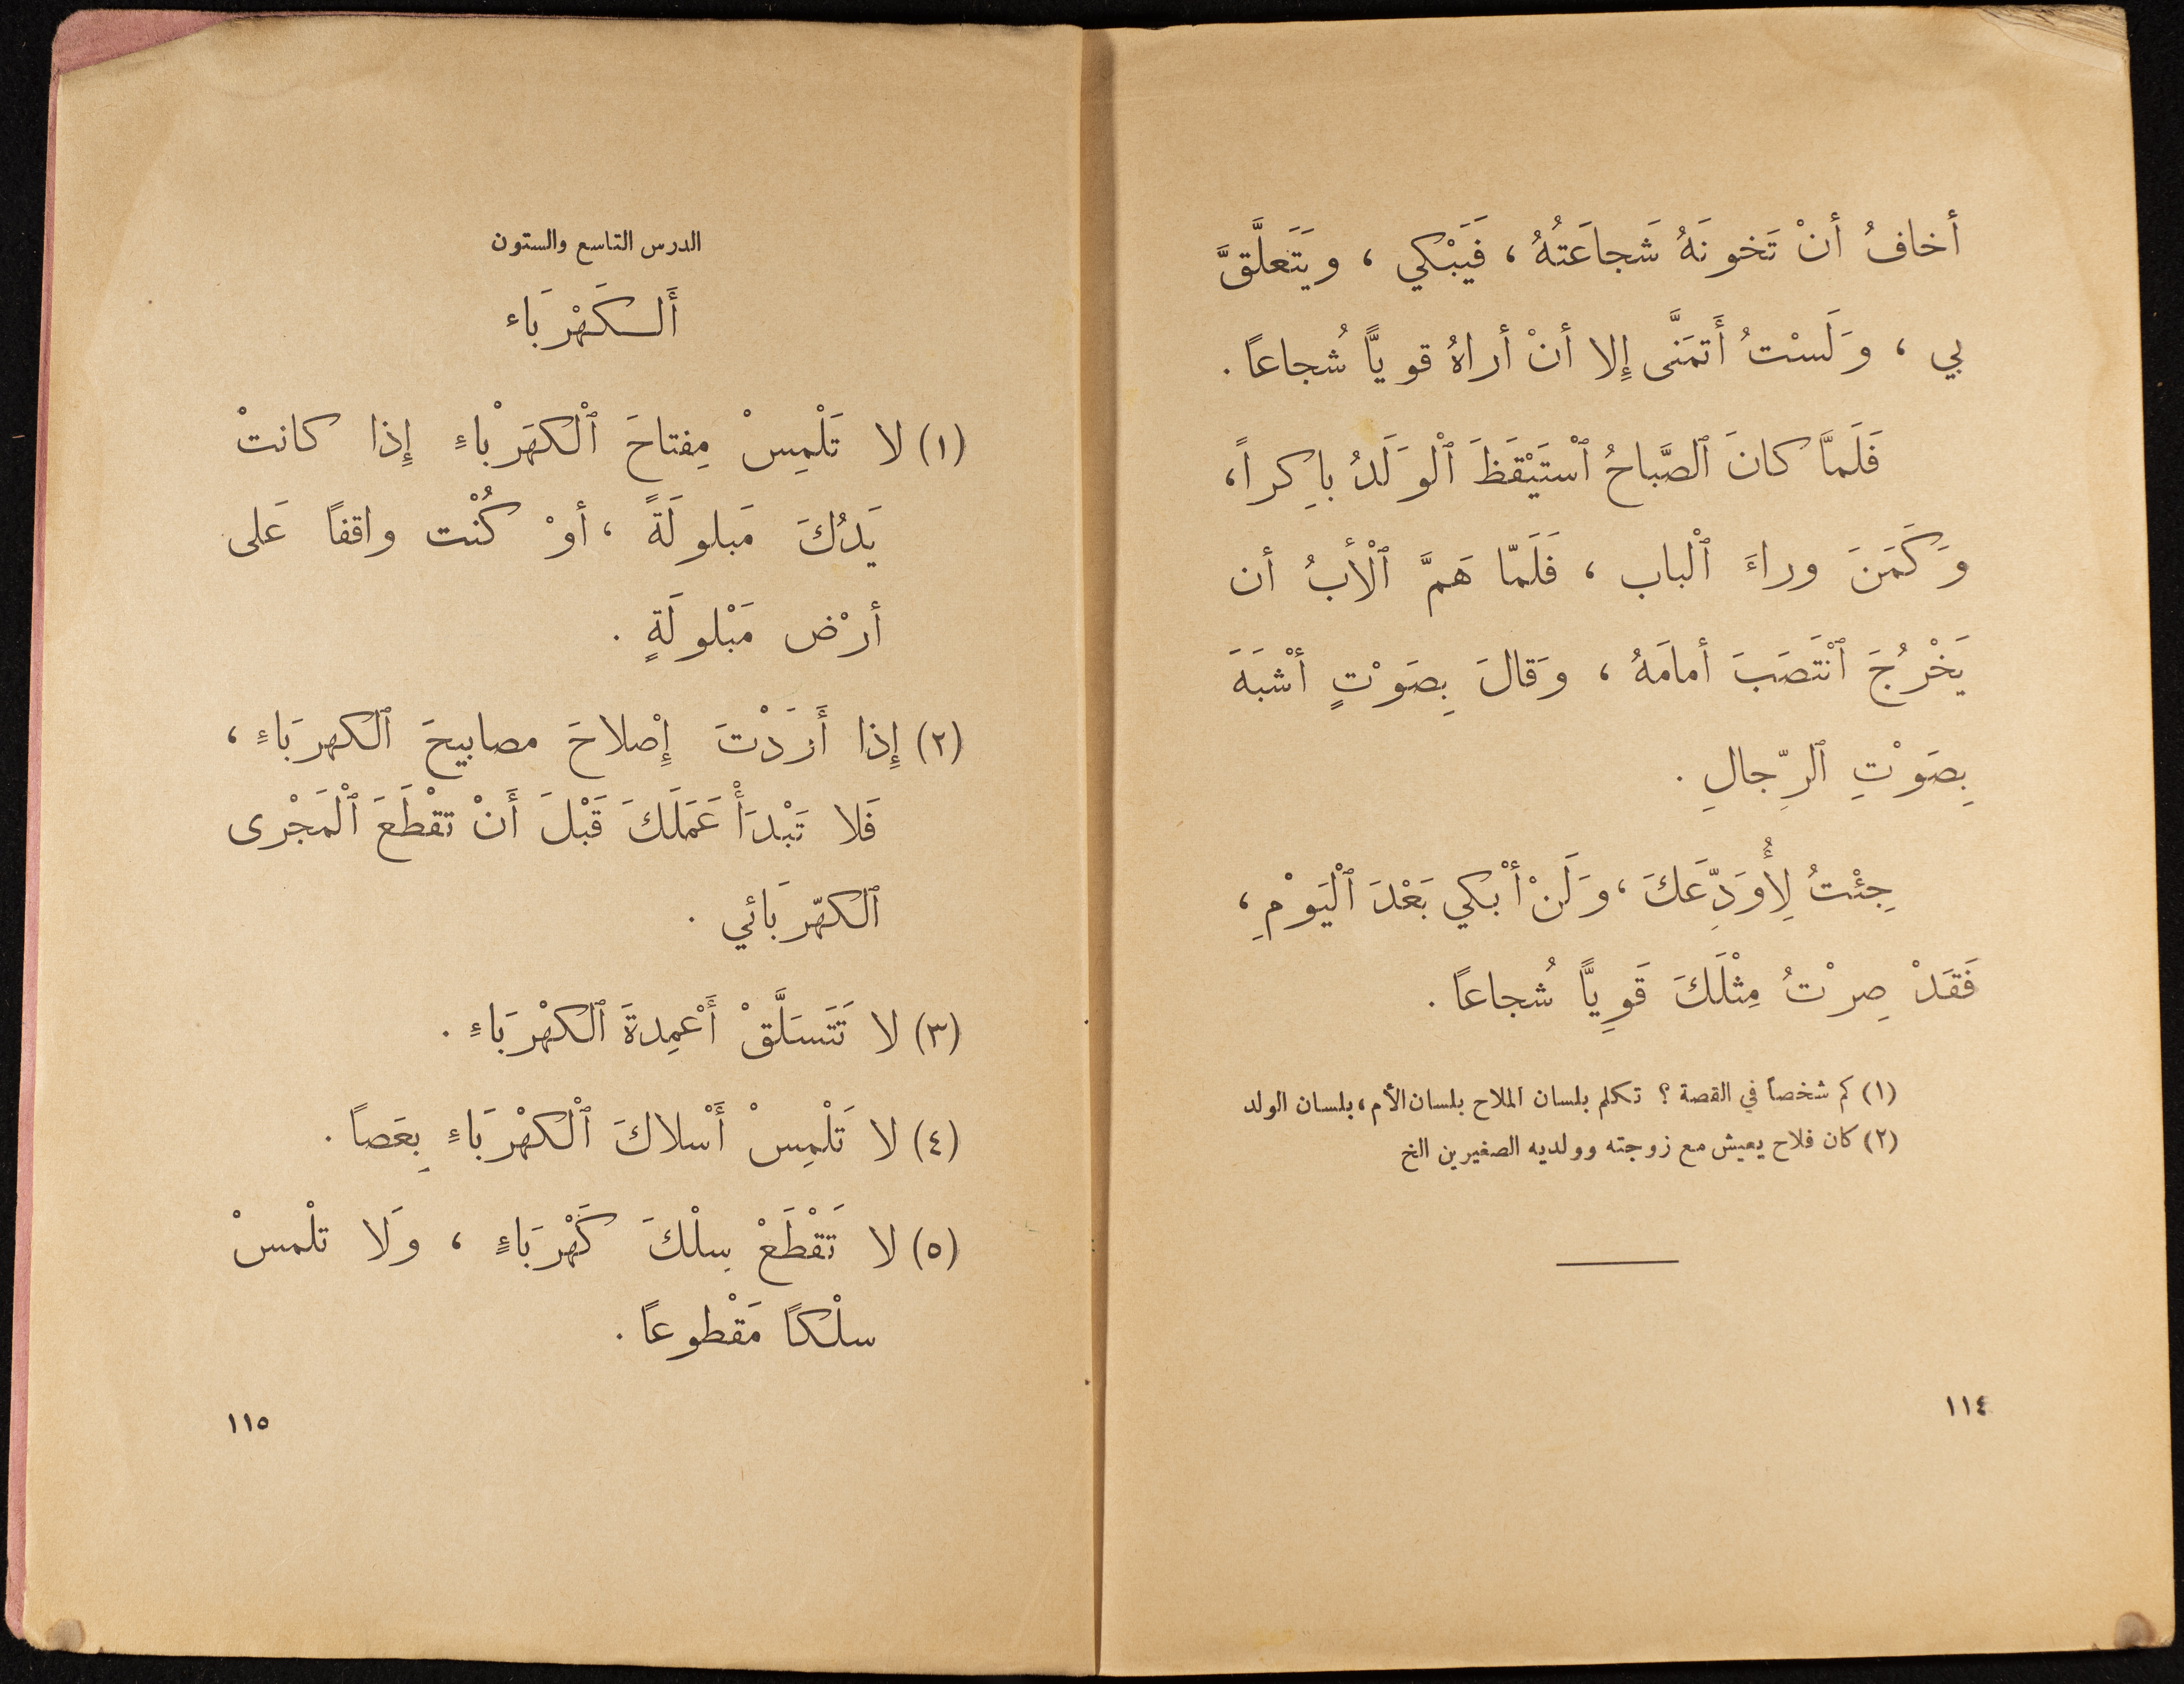 أخافُ أنْ تَخونَهُ شَجاعَتُهُ ، فَيَبْكي ، ويَتَعلَّقَّ
بي ، وَلَسْتُ أَتمَنَّى إِلا أنْ أراهُ قوياًّ شُجاعاً .
فَلَمَّا كانَ ٱلصَّباحُ ٱسْتَيْقَظَ ٱلْوَلَدُ باكِراً ،
وَكَمَنَ وراءَ ٱلْباب ، فَلَمّا هَمَّ ٱلْأبُ أن
يَخْرُجَ ٱنْتَصَبَ أمامَهُ ، وَقالَ بِصَوْتٍ أشْبَهَ
بِصَوْتِ ٱلرِّجالِ .
جِئْتُ لِأُوَدِّعَكَ ، وَلَنْ أبْكي بَعْدَ ٱلْيَوْمِ ،
فَقَدْ صِرْتُ مِثْلَكَ قَوِياًّ شُجاعاً .
(١) كم شخصاً في القصة ؟ تكلم بلسان الملاح بلسان الأم ، بلسان الولد
(٢) كان فلاح يعيش مع زوجته وولديه الصغيرين الخ
١١٤
الدرس التاسع والستون
أَلـكَهْرَباء
(١) لا تَلْمِسْ مِفتاحَ ٱلْكهَرْباءِ إِذا كانتْ
يَدُكَ مَبلولَةً ، أوْ كُنْت واقفاً عَلى
أرْض مَبْلولَةٍ .
(٢) إِذا أَرَدْتَ إِصْلاحَ مصابيحَ ٱلكهرَباءِ ،
فَلا تَبْدَأْ عَمَلَكَ قَبْلَ أَنْ تقْطَعَ ٱلْمَجْرى
ٱلكهّرَبائي .
(٣) لا تَتَسَلَّقْ أَعْمِدةَ ٱلكهْرَباءِ .
(٤) لا تَلْمِسْ أَسْلاكَ ٱلْكهْرَباءِ بِعَصاً .
(٥) لا تَقْطَعْ سِلْكَ كَهْرَباءٍ ، وَلا تلْمسْ
سلْكاً مَقْطوعاً .
١١٥